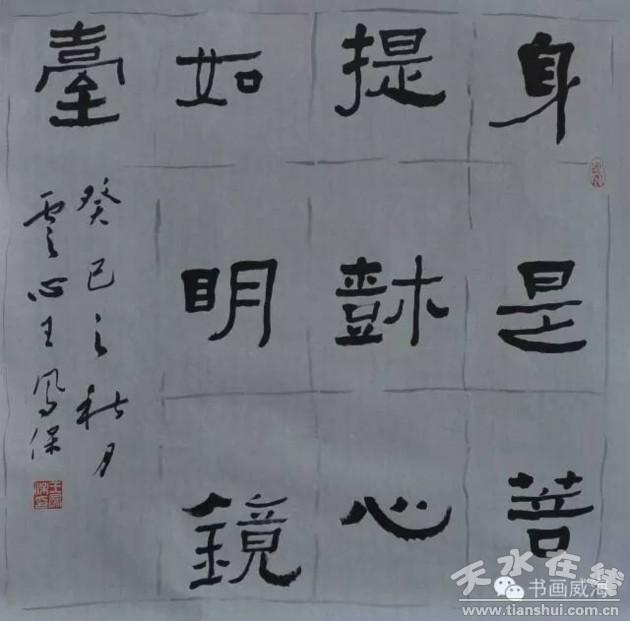 身是菩
提樹心
如明鏡
臺
癸巳之秋月
雲心王鳳保
天水在线
书画威海
www.tianshui.com.cn